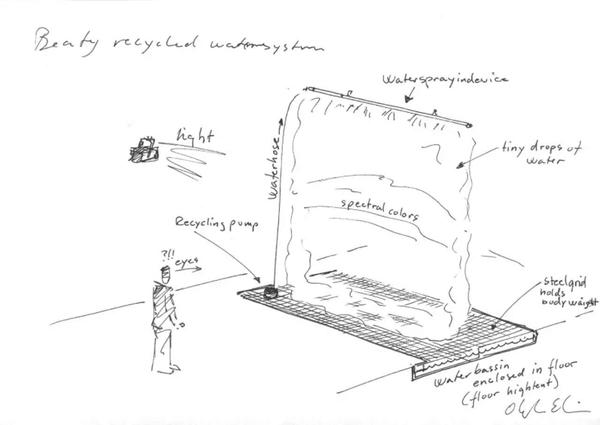 Beaty recycled watersystem
Watersprayindevice
light
Waterhose
tiny drops of
water
spectral colors
Recycling pump
?!!
eyes
steelgrid
holds
bodyweight
Waterbassin
enclosed in floor
(floor hightent)